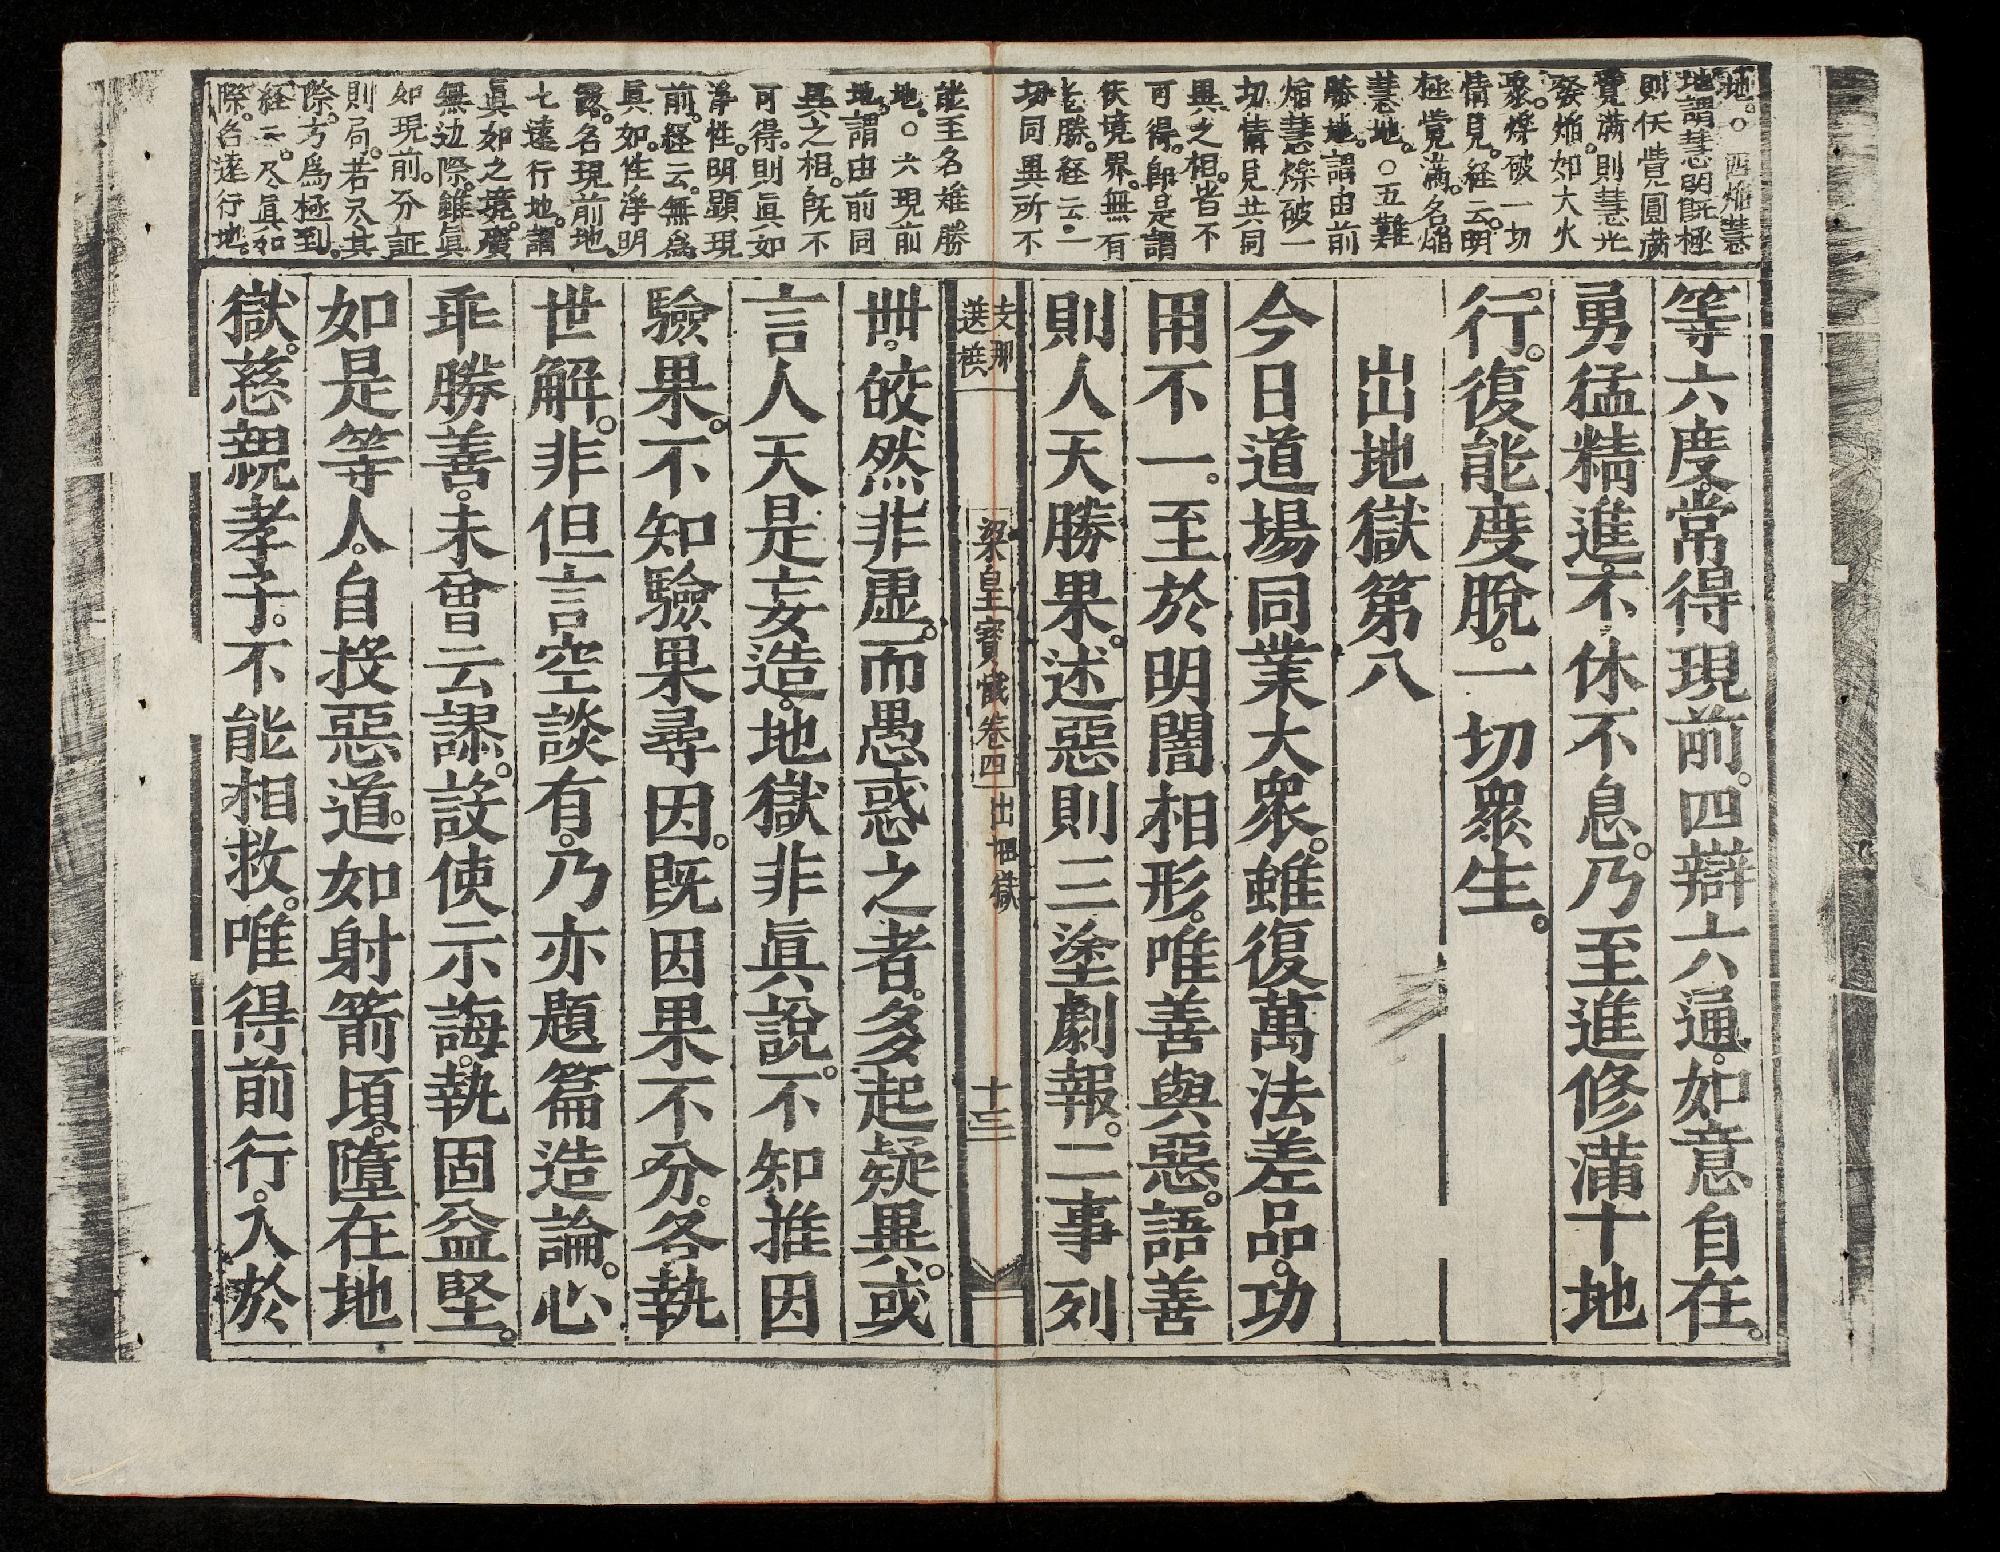 地。○四焰慧
地謂慧明既極
則仸覺圓滿
覺滿則慧光
發焰如大火
聚。爍破一切
情見。経云。明
極覺滿。名焰
慧地。○五難
勝地。謂由前
焰慧爍破一
切情見共同
異之相。皆不
可得。即是謂
仸境界。無有
能勝。経云。一
切同異所不
能至名難勝
地。○六現前
地。謂由前同
異之相。既不
可得。則真如
淨性。明顯現
前。経云。無為
真如。性淨明
露。名現前地。
七遠行地。謂
眞如之境。廣
無边際。雖眞
如現前。分証
則局。若尽其
際。方為極到。
経云。尽眞如
際。名遠行地。
等六度。常得現前。四辯六通。如意自在。
勇猛精進。不休不息。乃至進修滿十地
行。復能度脫。一切衆生。
出地獄第八
今日道場同業大衆。雖復萬法差品。功
用不一。至於明闇相形。唯善與惡。語善
則人天勝果。述惡則三塗劇報。二事列
世。皎然非虛。而愚惑之者。多起疑異。或
言人天是妄造。地獄非眞說。不知推因
驗果。不知驗果尋因。既因果不分。各執
世解。非但言空談有。乃亦題篇造論。心
乖勝善。未曾云謬。設使示誨。執固益堅。
如是等人。自投惡道。如射箭頃。墮在地
獄。慈親孝子。不能相救。唯得前行。入於
支那
撰
梁皇寶懺卷四
出地獄
十三